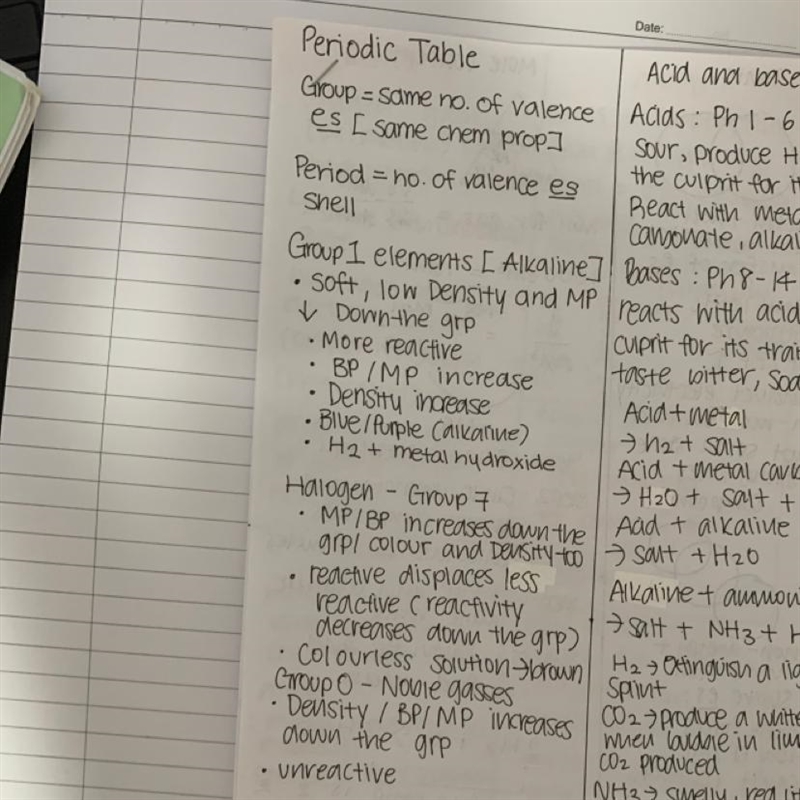 Date:
Periodic Table
Group = same no. of valence
es [ same chem prop]
Period = no. of valence es
shell
Group I elements [ Alkaline]
• Soft, low Density and MP
↓ Down the grp
• More reactive
• BP / MP increase
• Density increase
• Blue/Purple (alkaline)
• H2 + metal hydroxide
Halogen - Group 7
• MP/BP increases down the
grp/ colour and Density too
• reactive displaces less
reactive ( reactivity
decreases down the grp)
• Colourless solution → brown
Group 0 - Noble gasses
• Density / BP/ MP increases
down the grp
• unreactive
Acid and base
Acids : Ph 1 - 6
Sour, produce H
the culprit for it
React with meta
carbonate, alkal
Bases : Ph 8 - 14
reacts with acid
culprit for its trai
taste bitter, Soa
Acid + metal
→ h2 + salt
Acid + metal carb
→ H2O + salt +
Acid + alkaline
→ salt + H2O
Alkaline + ammon
→ salt + NH3 + H
H2 → Extinguish a lig
Splint
CO2 → produce a white
when in lim
CO2 produced
NH3 → smelly, red lit